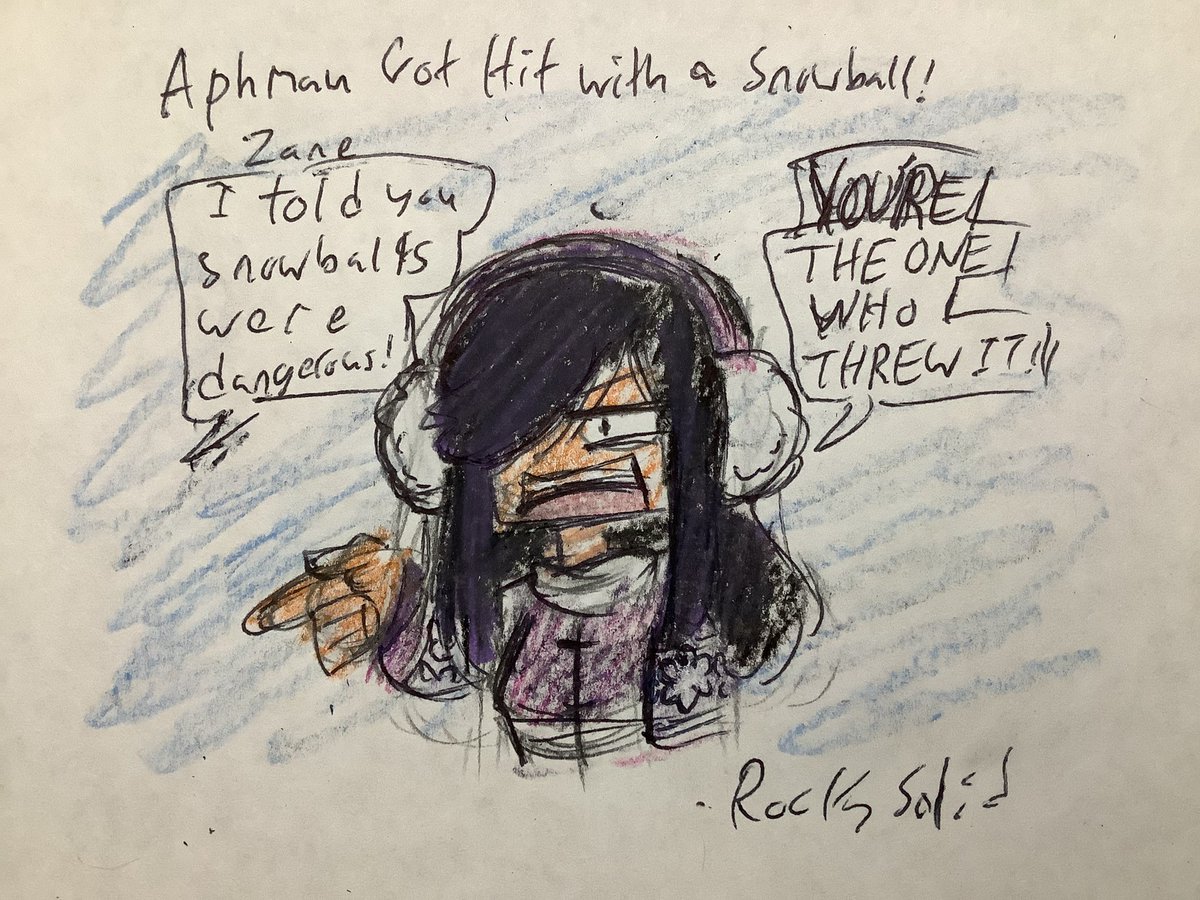 Aphmau Got Hit with a Snowball!
Zane
I told you
snowballs
were
dangerous!
YOU'RE
THE ONE
WHO
THREW IT!!!
Rocky Solid